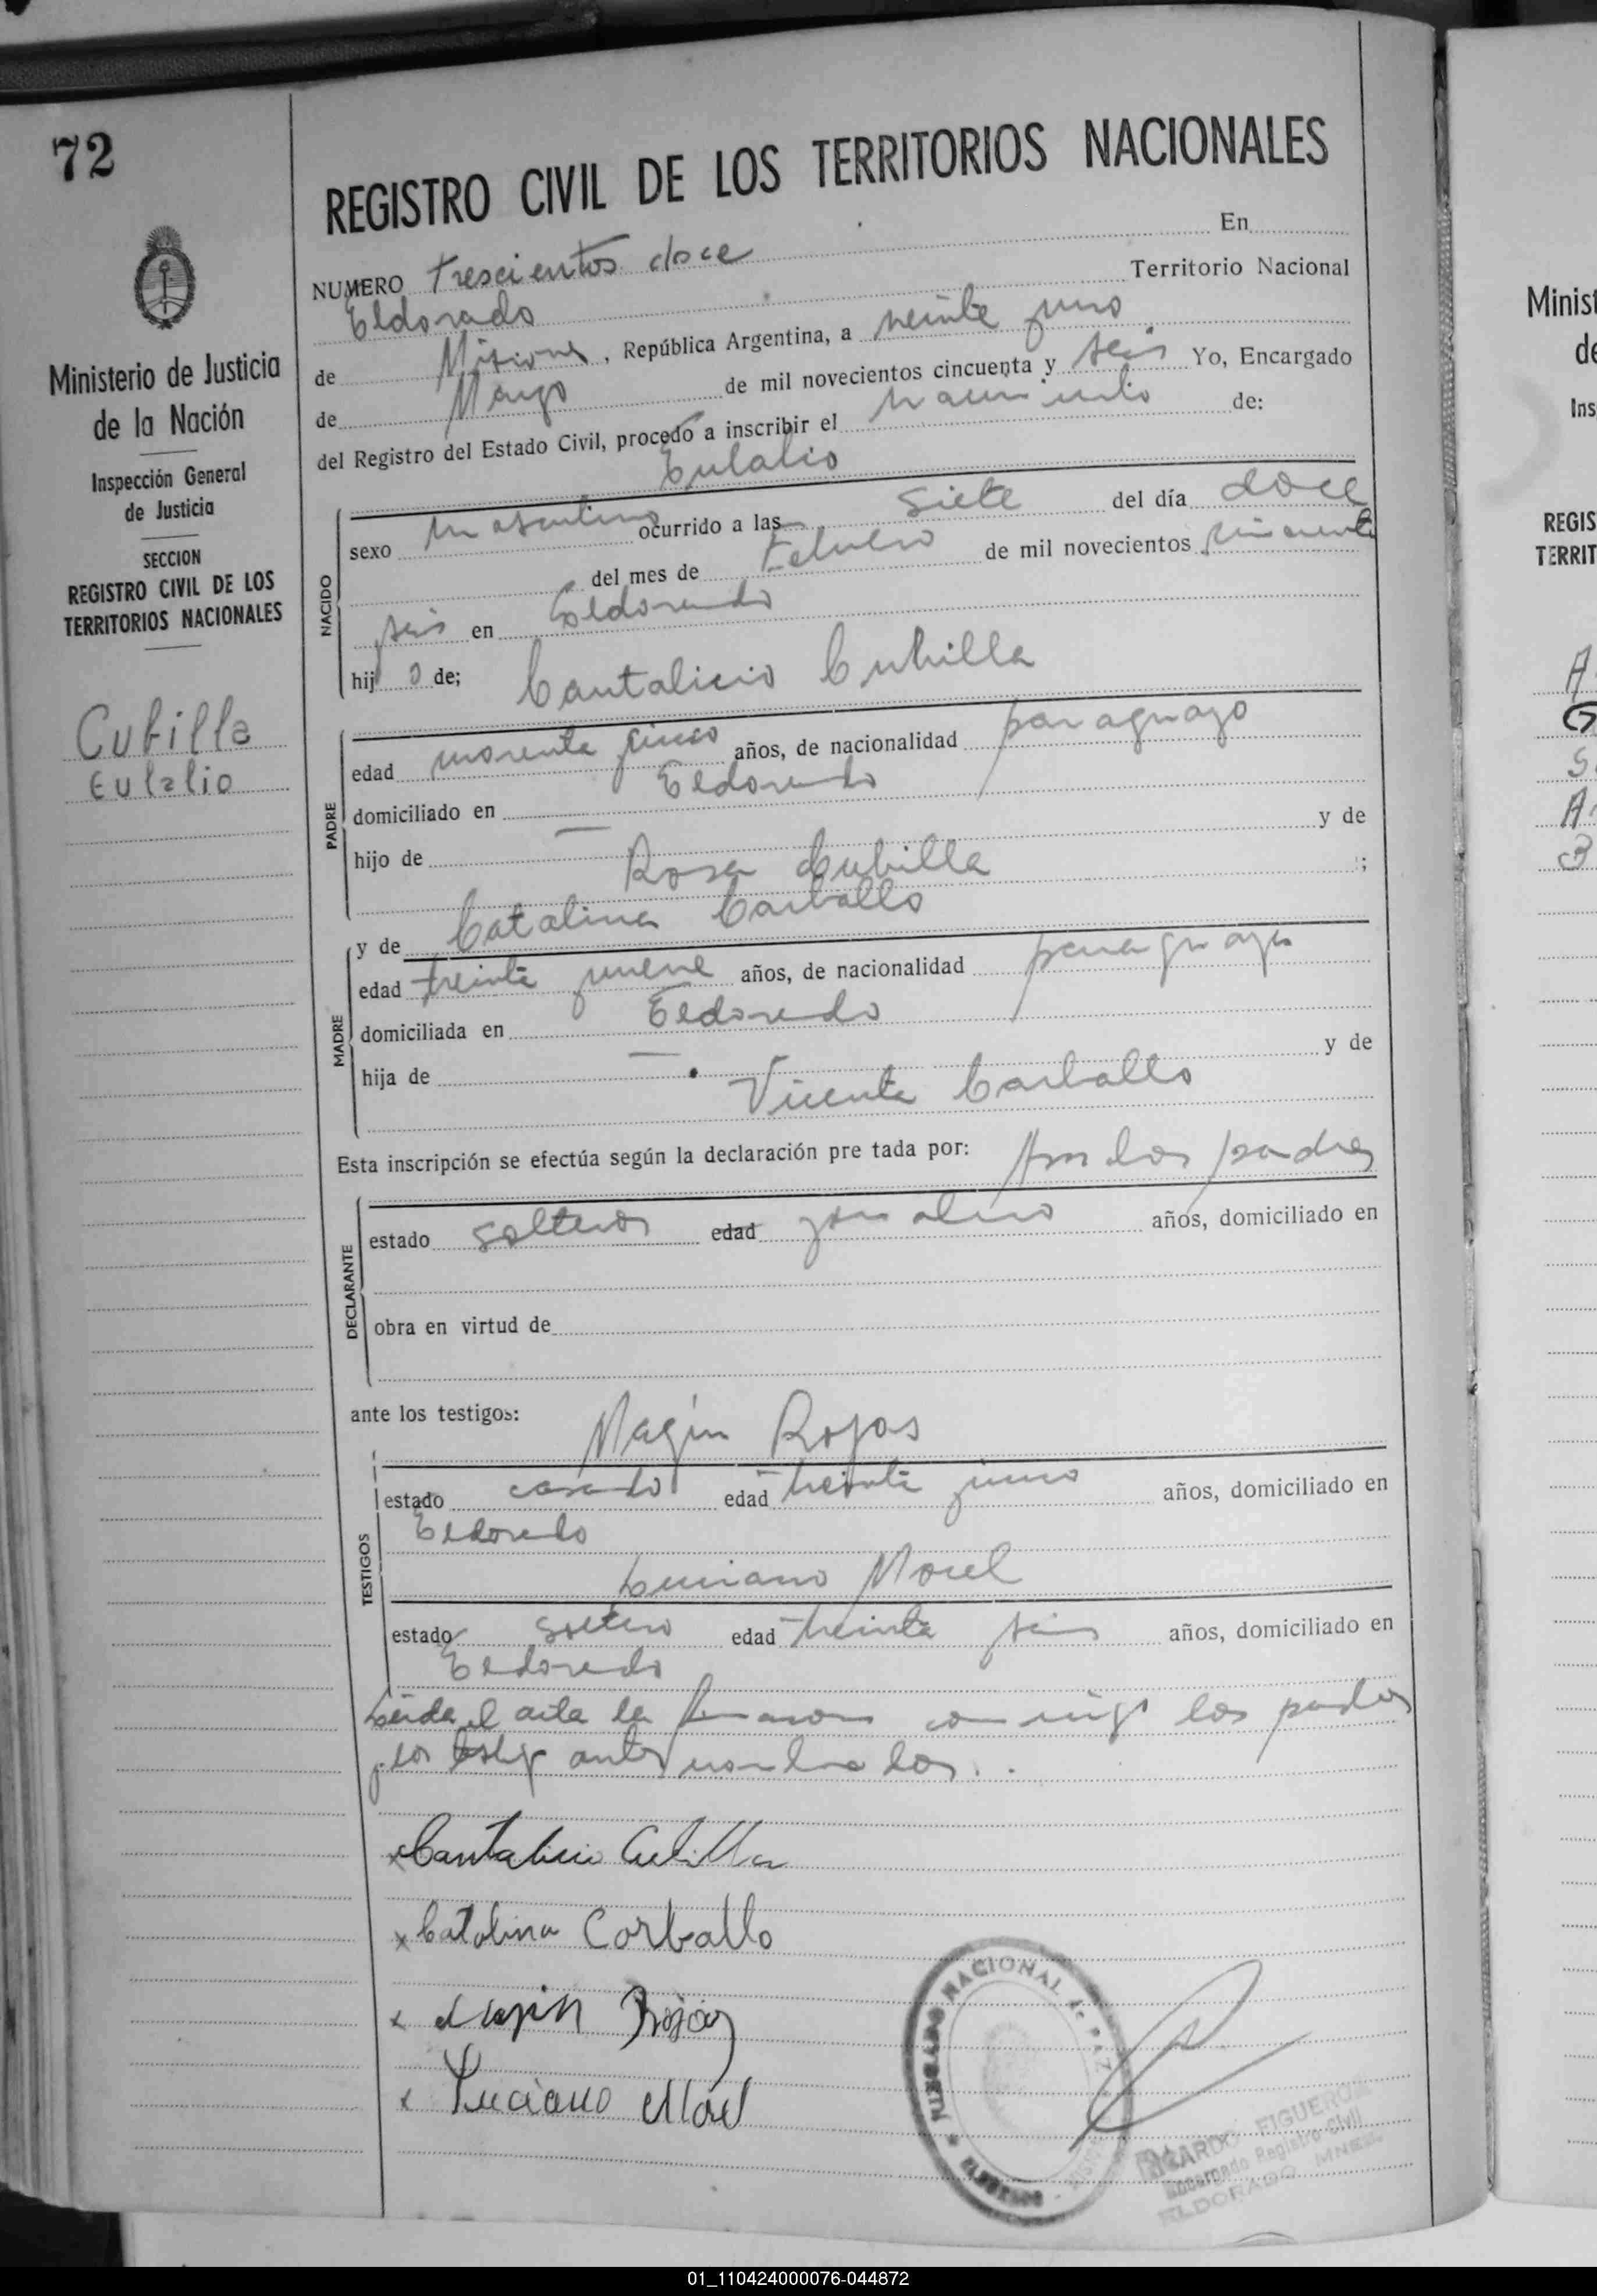 72
Ministerio de Justicia
de la Nación
Inspección General
de Justicia
SECCION
REGISTRO CIVIL DE LOS
TERRITORIOS NACIONALES
Cubilla
Eulalio
REGISTRO CIVIL DE LOS TERRITORIOS NACIONALES
NUMERO Trescientos doce En
Eldorado Territorio Nacional
de Misiones, República Argentina, a veinte y uno
de Mayo de mil novecientos cincuenta y seis Yo, Encargado
del Registro del Estado Civil, procedo a inscribir el nacimiento de:
Eulalio
NACIDO
sexo masculino ocurrido a las siete del día doce
del mes de Febrero de mil novecientos cincuenta
y seis en Eldorado
hijo de; Cantalicio Cubilla
PADRE
edad cuarenta y cinco años, de nacionalidad paraguayo
domiciliado en Eldorado
hijo de — y de
Rosa Cubilla ;
y de Catalina Carballo
MADRE
edad treinta y nueve años, de nacionalidad paraguaya
domiciliada en Eldorado
hija de — y de
Vicenta Carballo
Esta inscripción se efectúa según la declaración pre tada por: Ambos padres
DECLARANTE
estado solteros edad años, domiciliado en
obra en virtud de
ante los testigos: Magin Rojas
TESTIGOS
estado casado edad treinta y uno años, domiciliado en
Eldorado
Luciano Morel
estado soltero edad treinta y seis años, domiciliado en
Eldorado
Leída el acta la firmaron conmigo los padres
y los testigos antes nombrados.
x Cantalicio Cubilla
x Catalina Carballo
x Magin Rojas
x Luciano Morel
NACIONAL DE PAZ
ELDORADO
RICARDO FIGUEROA
Encargado Registro Civil
ELDORADO MNES.
Minist
de
Ins
REGIS
TERRIT
01_110424000076-044872